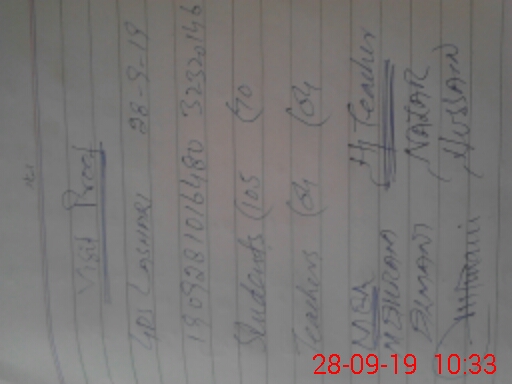 Visit Proof
GPS LASHARI 28-9-19
1909281016480 32320146
Students (105 (70
Teachers (04 (04
MEA H/Teacher
NAZAR
HUSSAIN
28-09-19 10:33